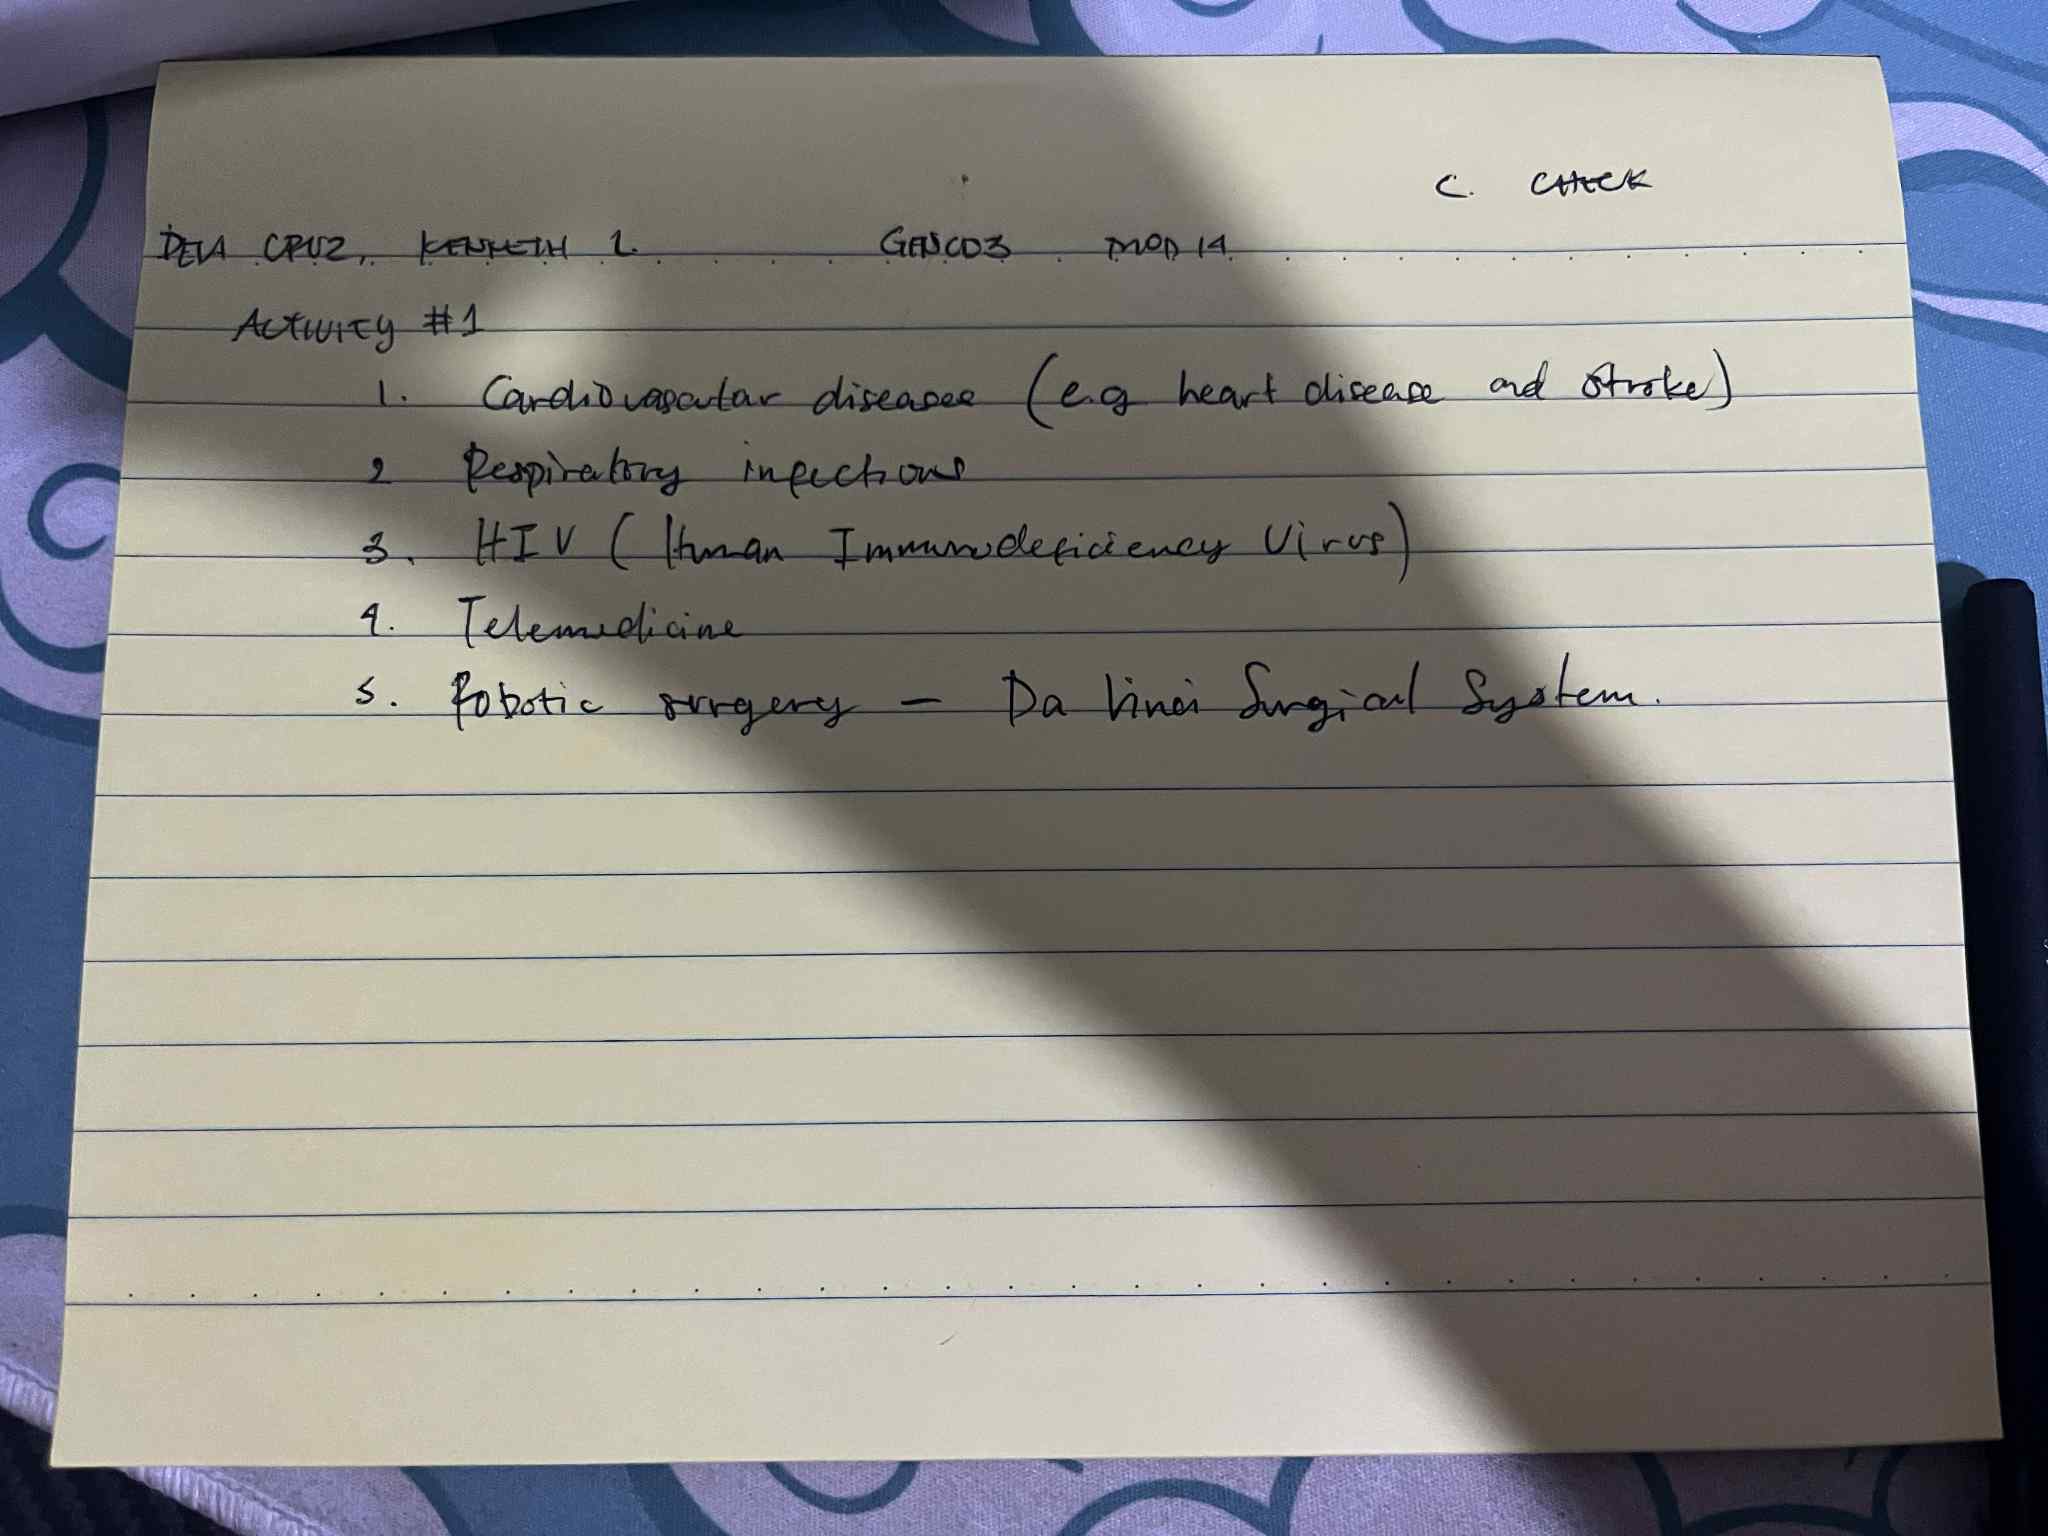 C. CHECK
DELA CRUZ, KENNETH I. GENCO3 MOD 14
ACTIVITY #1
1. Cardiovascular diseases (e.g heart disease and stroke)
2 Respiratory infections
3. HIV (Human Immunodeficiency Virus)
4. Telemedicine
5. Robotic surgery – Da Vinci Surgical System.